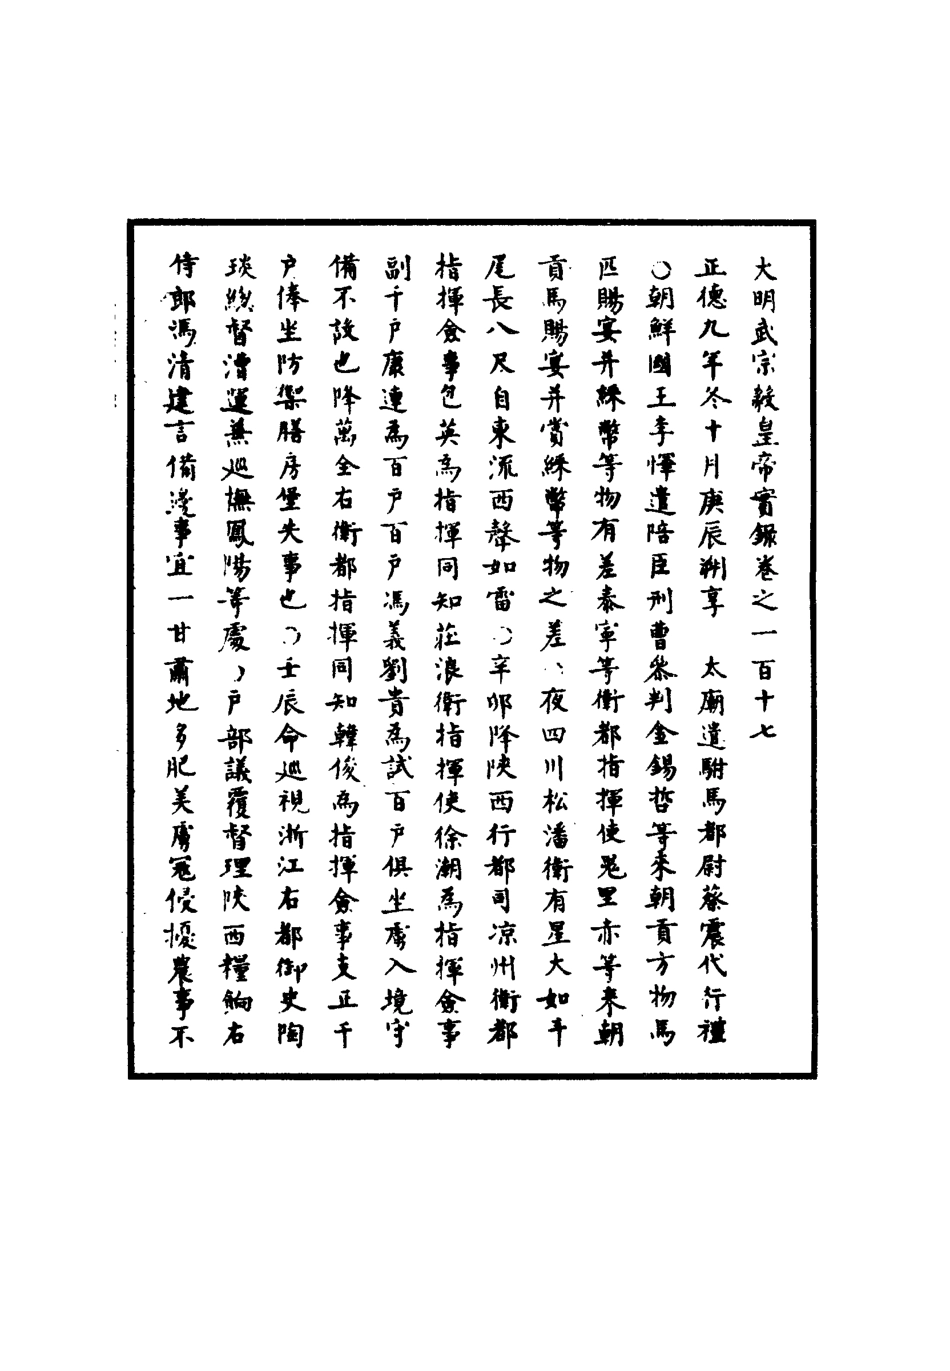 大明武宗毅皇帝實錄卷之一百十七
正德九年冬十月庚辰朔享　太廟遣駙馬都尉蔡震代行禮
○朝鮮國王李懌遣陪臣刑曹叅判金錫哲等來朝貢方物馬
匹賜宴并綵幣等物有差泰寧等衛都指揮使兎里赤等來朝
貢馬賜宴并賞綵幣等物之差、夜四川松潘衛有星大如斗
尾長八尺自東流西聲如雷○辛卯降陝西行都司凉州衛都
指揮僉事包英為指揮同知莊浪衛指揮使徐潮為指揮僉事
副千户康連為百户百户馮義劉貴為試百户俱坐虜入境守
備不設也降萬全右衛都指揮同知韓俊為指揮僉事支正千
户俸坐防禦膳房堡失事也○壬辰命巡視浙江右都御史陶
琰總督漕運兼巡撫鳳陽等處○户部議覆督理陝西糧餉右
侍郎馮清建言備邊事宜一甘肅地多肥美虜冦侵擾農事不